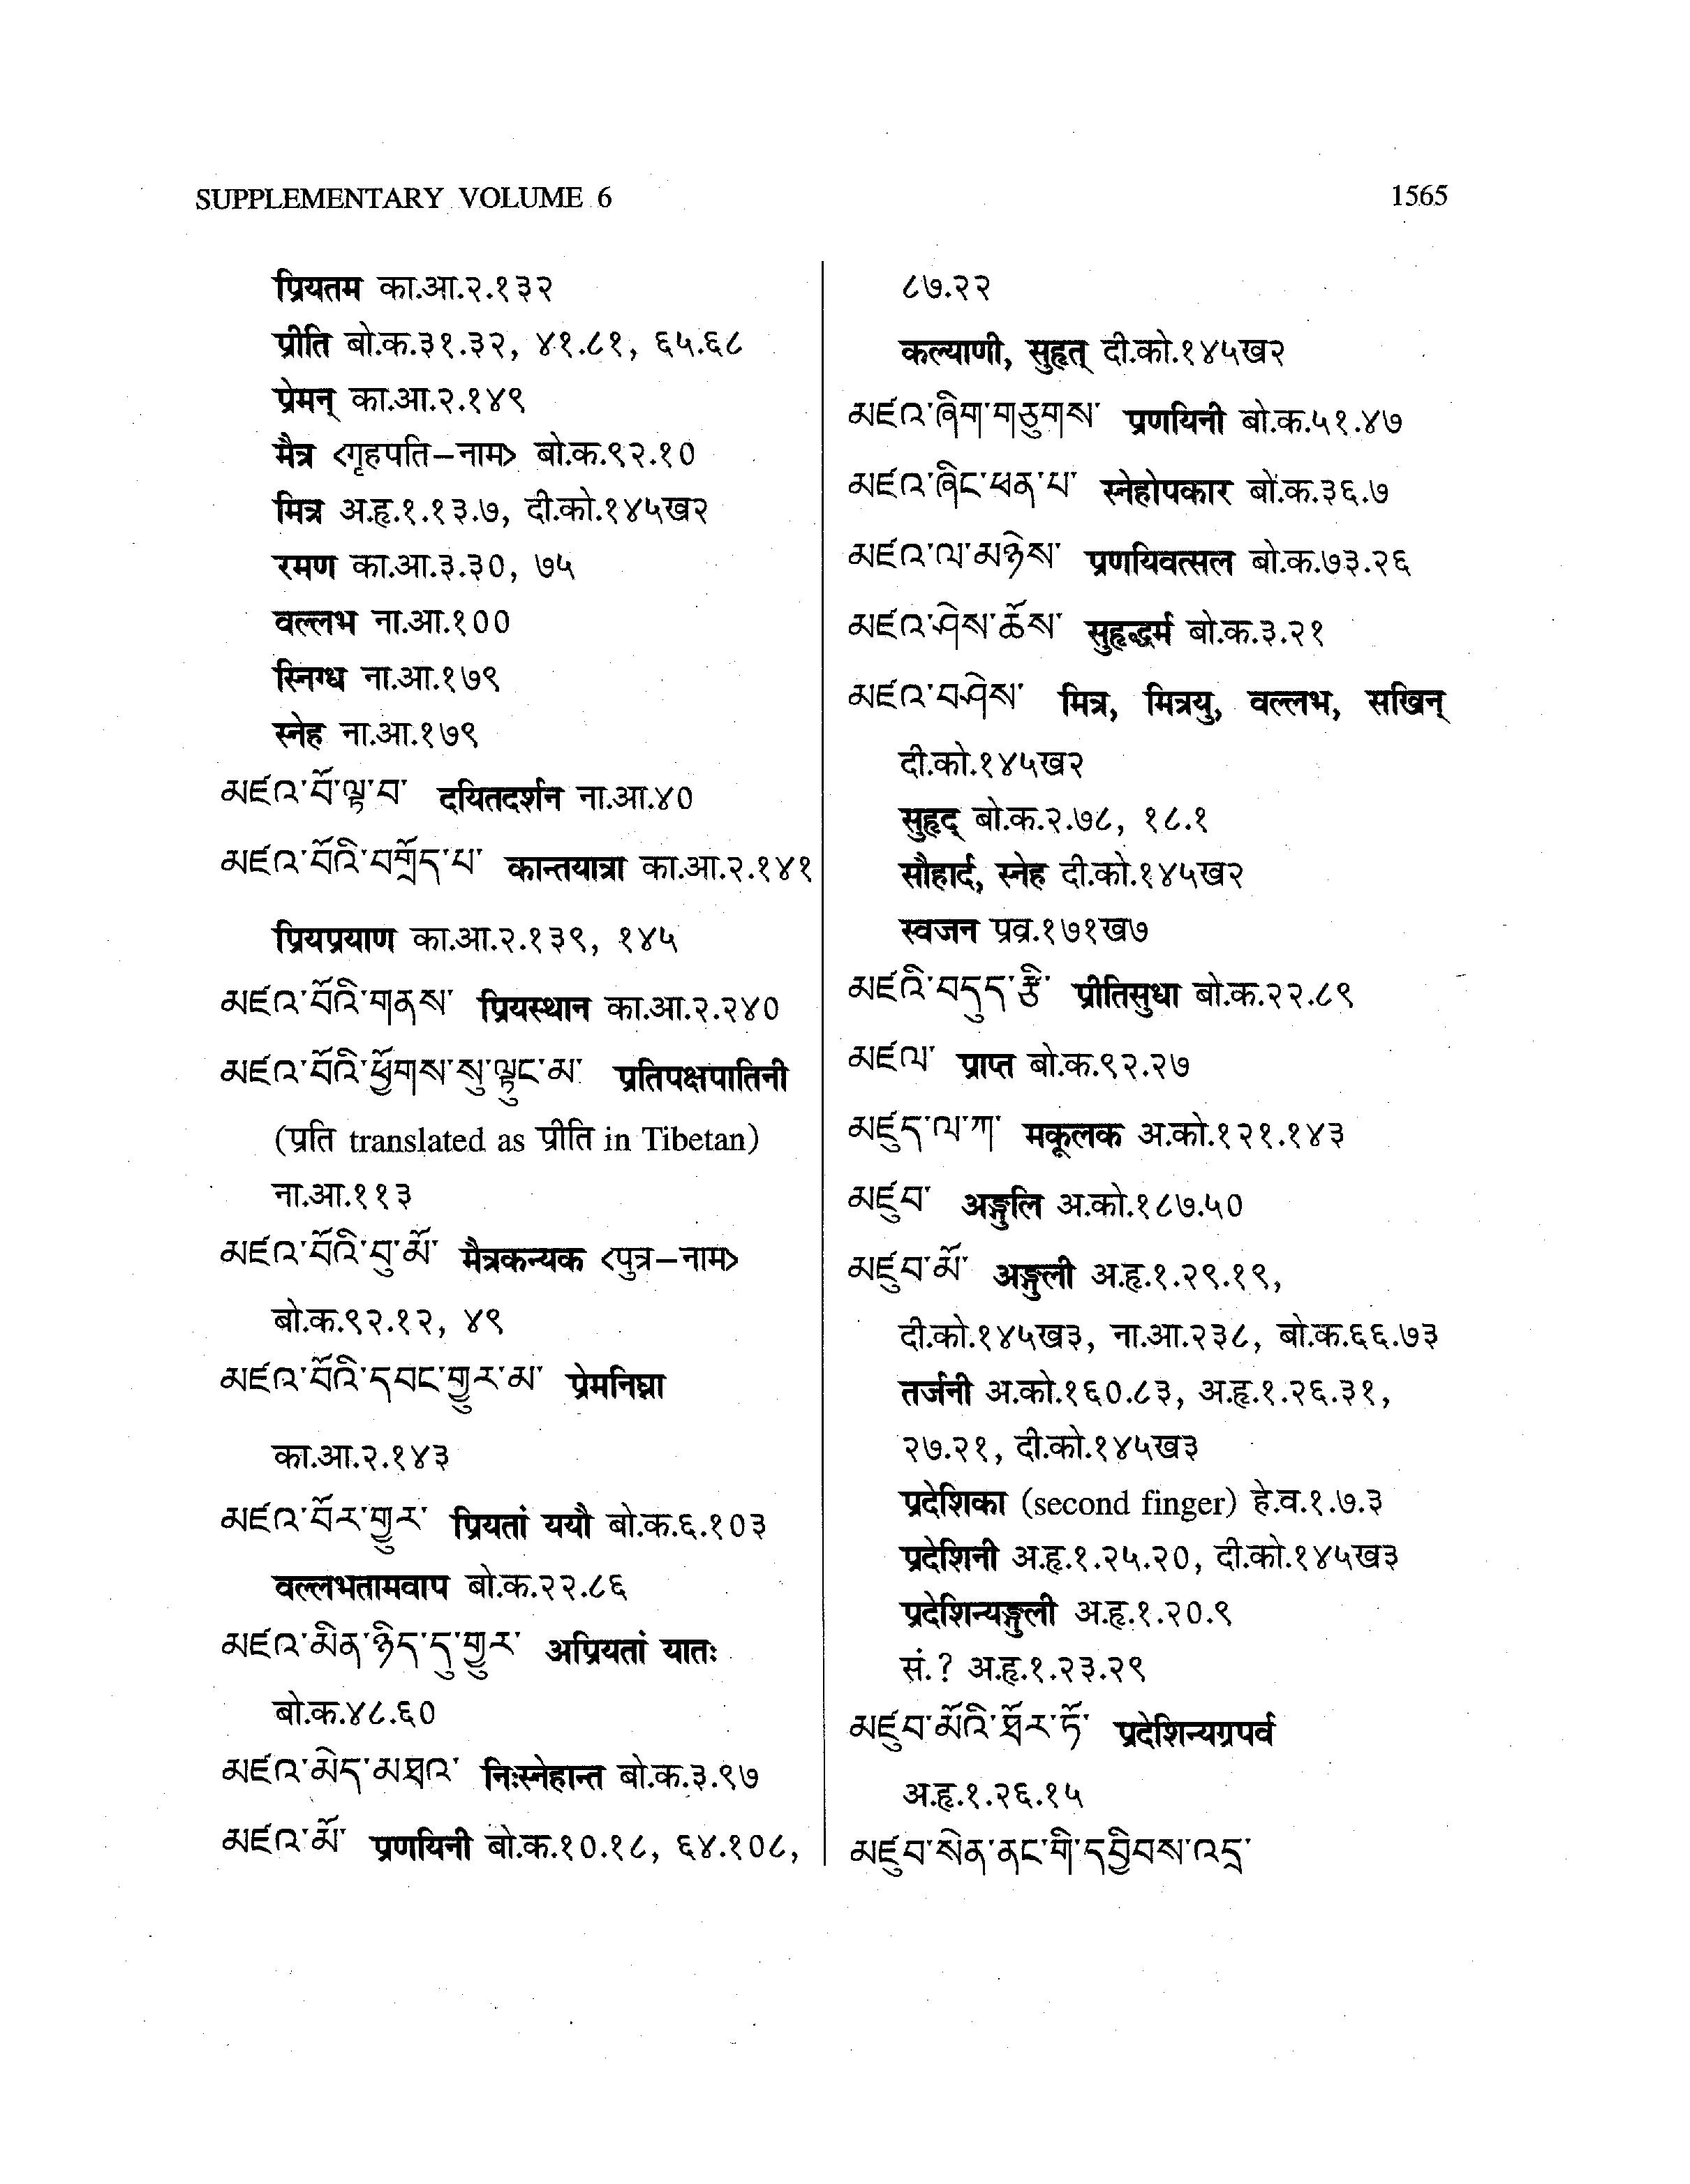 SUPPLEMENTARY VOLUME 6
1565
प्रियतम का.आ.२.१३२
प्रीति बो.क.३१.३२, ४१.८१, ६५.६८
प्रेमन् का.आ.२.१४९
मैत्र <गृहपति–नाम> बो.क.९२.१०
मित्र अ.हृ.१.१३.७, दी.को.१४५ख२
रमण का.आ.३.३०, ७५
वल्लभ ना.आ.१००
स्निग्ध ना.आ.१७९
स्नेह ना.आ.१७९
མཛའ་བོ་ལྟ་བ་ दयितदर्शन ना.आ.४०
མཛའ་བོའི་བགྲོད་པ་ कान्तयात्रा का.आ.२.१४१
प्रियप्रयाण का.आ.२.१३९, १४५
མཛའ་བོའི་གནས་ प्रियस्थान का.आ.२.२४०
མཛའ་བོའི་ཕྱོགས་སུ་ལྟུང་མ་ प्रतिपक्षपातिनी
(प्रति translated as प्रीति in Tibetan)
ना.आ.११३
མཛའ་བོའི་བུ་མོ་ मैत्रकन्यक <पुत्र–नाम>
बो.क.९२.१२, ४९
མཛའ་བོའི་དབང་གྱུར་མ་ प्रेमनिघ्ना
का.आ.२.१४३
མཛའ་བོར་གྱུར་ प्रियतां ययौ बो.क.६.१०३
वल्लभतामवाप बो.क.२२.८६
མཛའ་མིན་ཉིད་དུ་གྱུར་ अप्रियतां यातः
बो.क.४८.६०
མཛའ་མེད་མཐའ་ निःस्नेहान्त बो.क.३.९७
མཛའ་མོ་ प्रणयिनी बो.क.१०.१८, ६४.१०८,
८७.२२
कल्याणी, सुहृत् दी.को.१४५ख२
མཛའ་ཞིག་གཅུགས་ प्रणयिनी बो.क.५१.४७
མཛའ་ཞིང་ཕན་པ་ स्नेहोपकार बो.क.३६.७
མཛའ་ལ་མཉེས་ प्रणयिवत्सल बो.क.७३.२६
མཛའ་ཤེས་ཆོས་ सुहृद्धर्म बो.क.३.२१
མཛའ་བཤེས་ मित्र, मित्रयु, वल्लभ, सखिन्
दी.को.१४५ख२
सुहृद् बो.क.२.७८, १८.१
सौहार्द, स्नेह दी.को.१४५ख२
स्वजन प्रव्र.१७१ख७
མཛའི་བདུད་རྩི་ प्रीतिसुधा बो.क.२२.८९
མཛལ་ प्राप्त बो.क.९२.२७
མཛུད་ལ་ཀ་ मकूलक अ.को.१२१.१४३
མཛུབ་ अङ्गुलि अ.को.१८७.५०
མཛུབ་མོ་ अङ्गुली अ.हृ.१.२९.१९,
दी.को.१४५ख३, ना.आ.२३८, बो.क.६६.७३
तर्जनी अ.को.१६०.८३, अ.हृ.१.२६.३१,
२७.२१, दी.को.१४५ख३
प्रदेशिका (second finger) हे.व.१.७.३
प्रदेशिनी अ.हृ.१.२५.२०, दी.को.१४५ख३
प्रदेशिन्यङ्गुली अ.हृ.१.२०.९
सं.? अ.हृ.१.२३.२९
མཛུབ་མོའི་ཐོར་ཏོ་ प्रदेशिन्यग्रपर्व
अ.हृ.१.२६.१५
མཛུབ་སེན་ནང་གི་དབྱིབས་འདྲ་